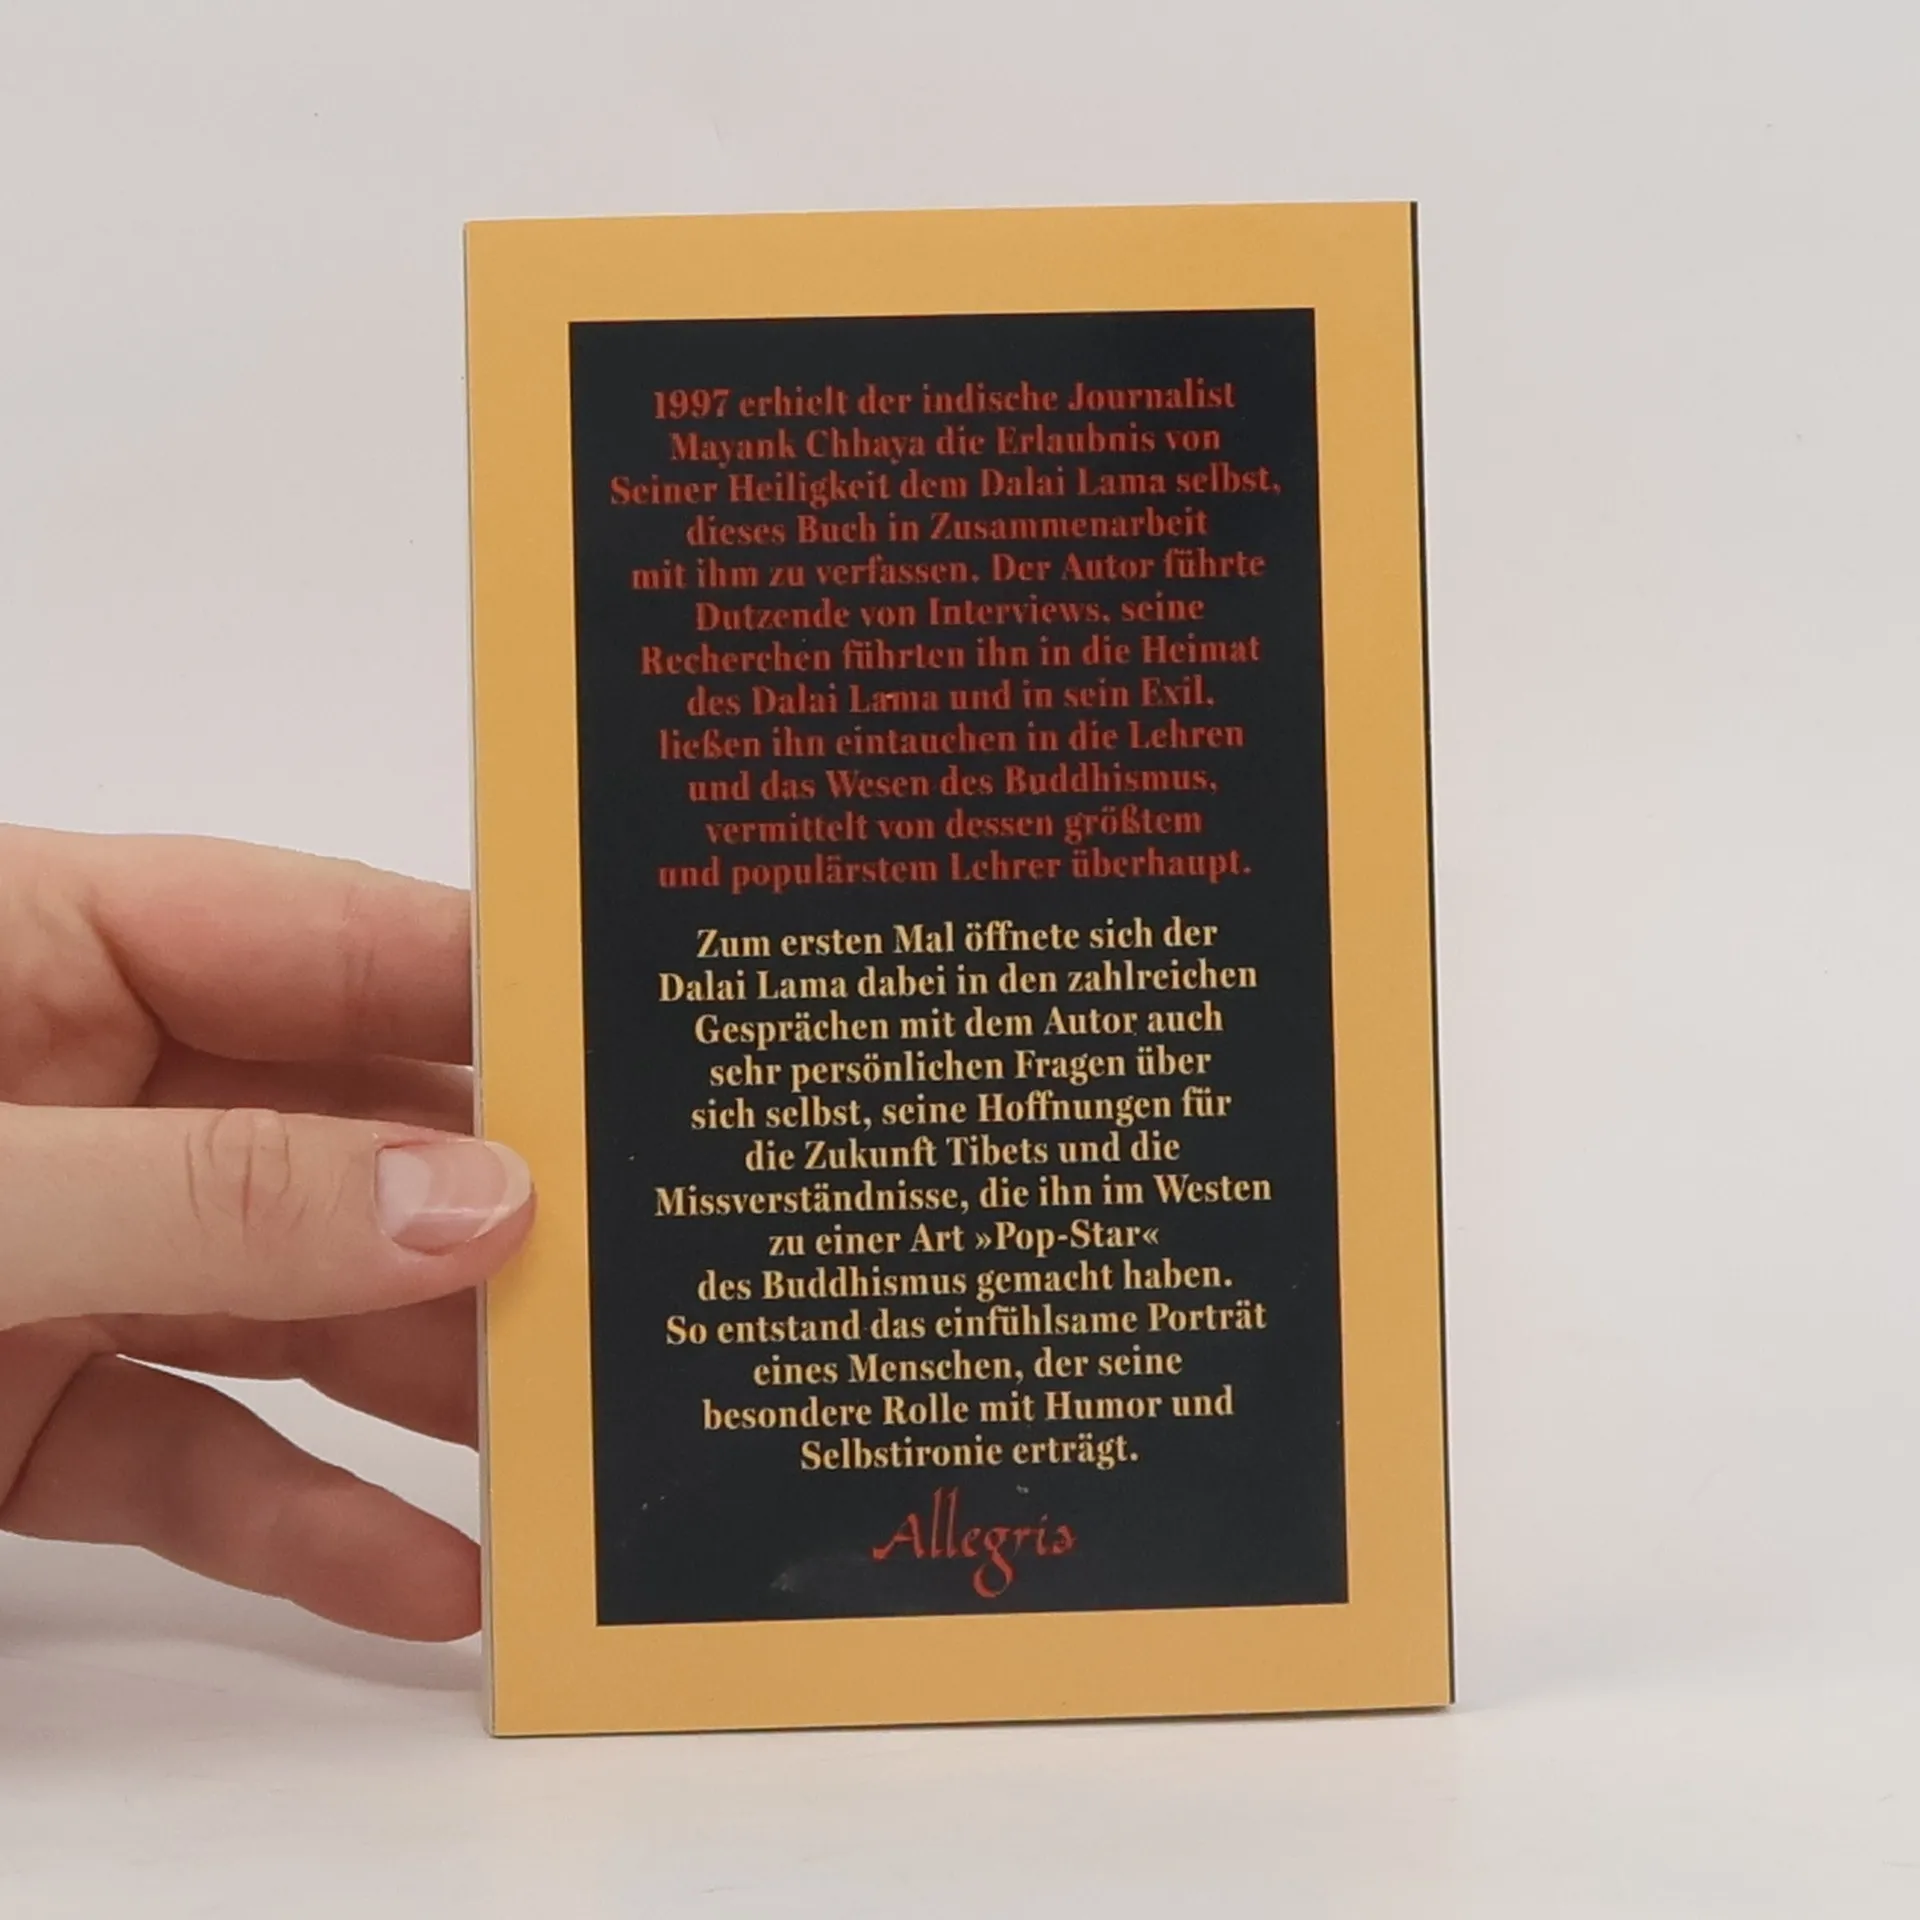 1997 erhielt der indische Journalist
Mayank Chhaya die Erlaubnis von
Seiner Heiligkeit dem Dalai Lama selbst,
dieses Buch in Zusammenarbeit
mit ihm zu verfassen. Der Autor führte
Dutzende von Interviews, seine
Recherchen führten ihn in die Heimat
des Dalai Lama und in sein Exil,
ließen ihn eintauchen in die Lehren
und das Wesen des Buddhismus,
vermittelt von dessen größtem
und populärstem Lehrer überhaupt.
Zum ersten Mal öffnete sich der
Dalai Lama dabei in den zahlreichen
Gesprächen mit dem Autor auch
sehr persönlichen Fragen über
sich selbst, seine Hoffnungen für
die Zukunft Tibets und die
Missverständnisse, die ihn im Westen
zu einer Art »Pop-Star«
des Buddhismus gemacht haben.
So entstand das einfühlsame Porträt
eines Menschen, der seine
besondere Rolle mit Humor und
Selbstironie erträgt.
Allegria